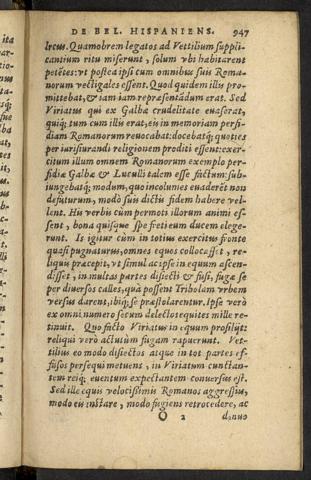 DE BEL. HISPANIENS. 947
lrcus. Quamobrem legatos ad Vettilium suppli-
cantium ritu miserunt, solum vbi habitarent
petẽtes: vt postea ipsi cum omnibus suis Roma-
norum vectigales essent. Quod quidem illis pro-
mittebat, & iam iam repræsentãdum erat. Sed
Viriatus qui ex Galbæ crudelitate euaserat,
quiq; tum cum illis erat, eis in memoriam perfi-
diam Romanorum reuocabat: docebatq; quoties
per iurisiurandi religionem proditi essent: exer-
citum illum omnem Romanorum exemplo per-
fidiæ Galbæ & Luculli talem esse factum: sub-
iungebatq; modum, quo incolumes euaderēt non
defuturum, modò suis dictis fidem habere vel-
lent. His verbis cùm permoti illorum animi es-
sent, bona quisque spe freti eum ducem elege-
runt. Is igitur cùm in totius exercitus fronte
quasi pugnaturus, omnes equos collocasset, re-
liquis præcepit, vt simul ac ipse in equum ascen-
disset, in multas partes disiecti & fusi, fugæ se
per diuersos calles, quà possent Tribolam vrbem
versus darent, ibiq; se præstolarentur. Ipse verò
ex omni numero secum delectos equites mille re-
tinuit. Quo facto Viriatus in equum prosilijt:
reliqui verò actutùm fugam rapuerunt. Vet-
tilius eo modo disiectos atque in tot partes ef-
fusos persequi metuens, in Viriatum cunctan-
tem reiq; euentum expectantem conuersus est.
Sed ille equis velocissimis Romanos aggressus,
modo eis instare, modo fugiens retrocedere, ac
O 2 denuo
ita